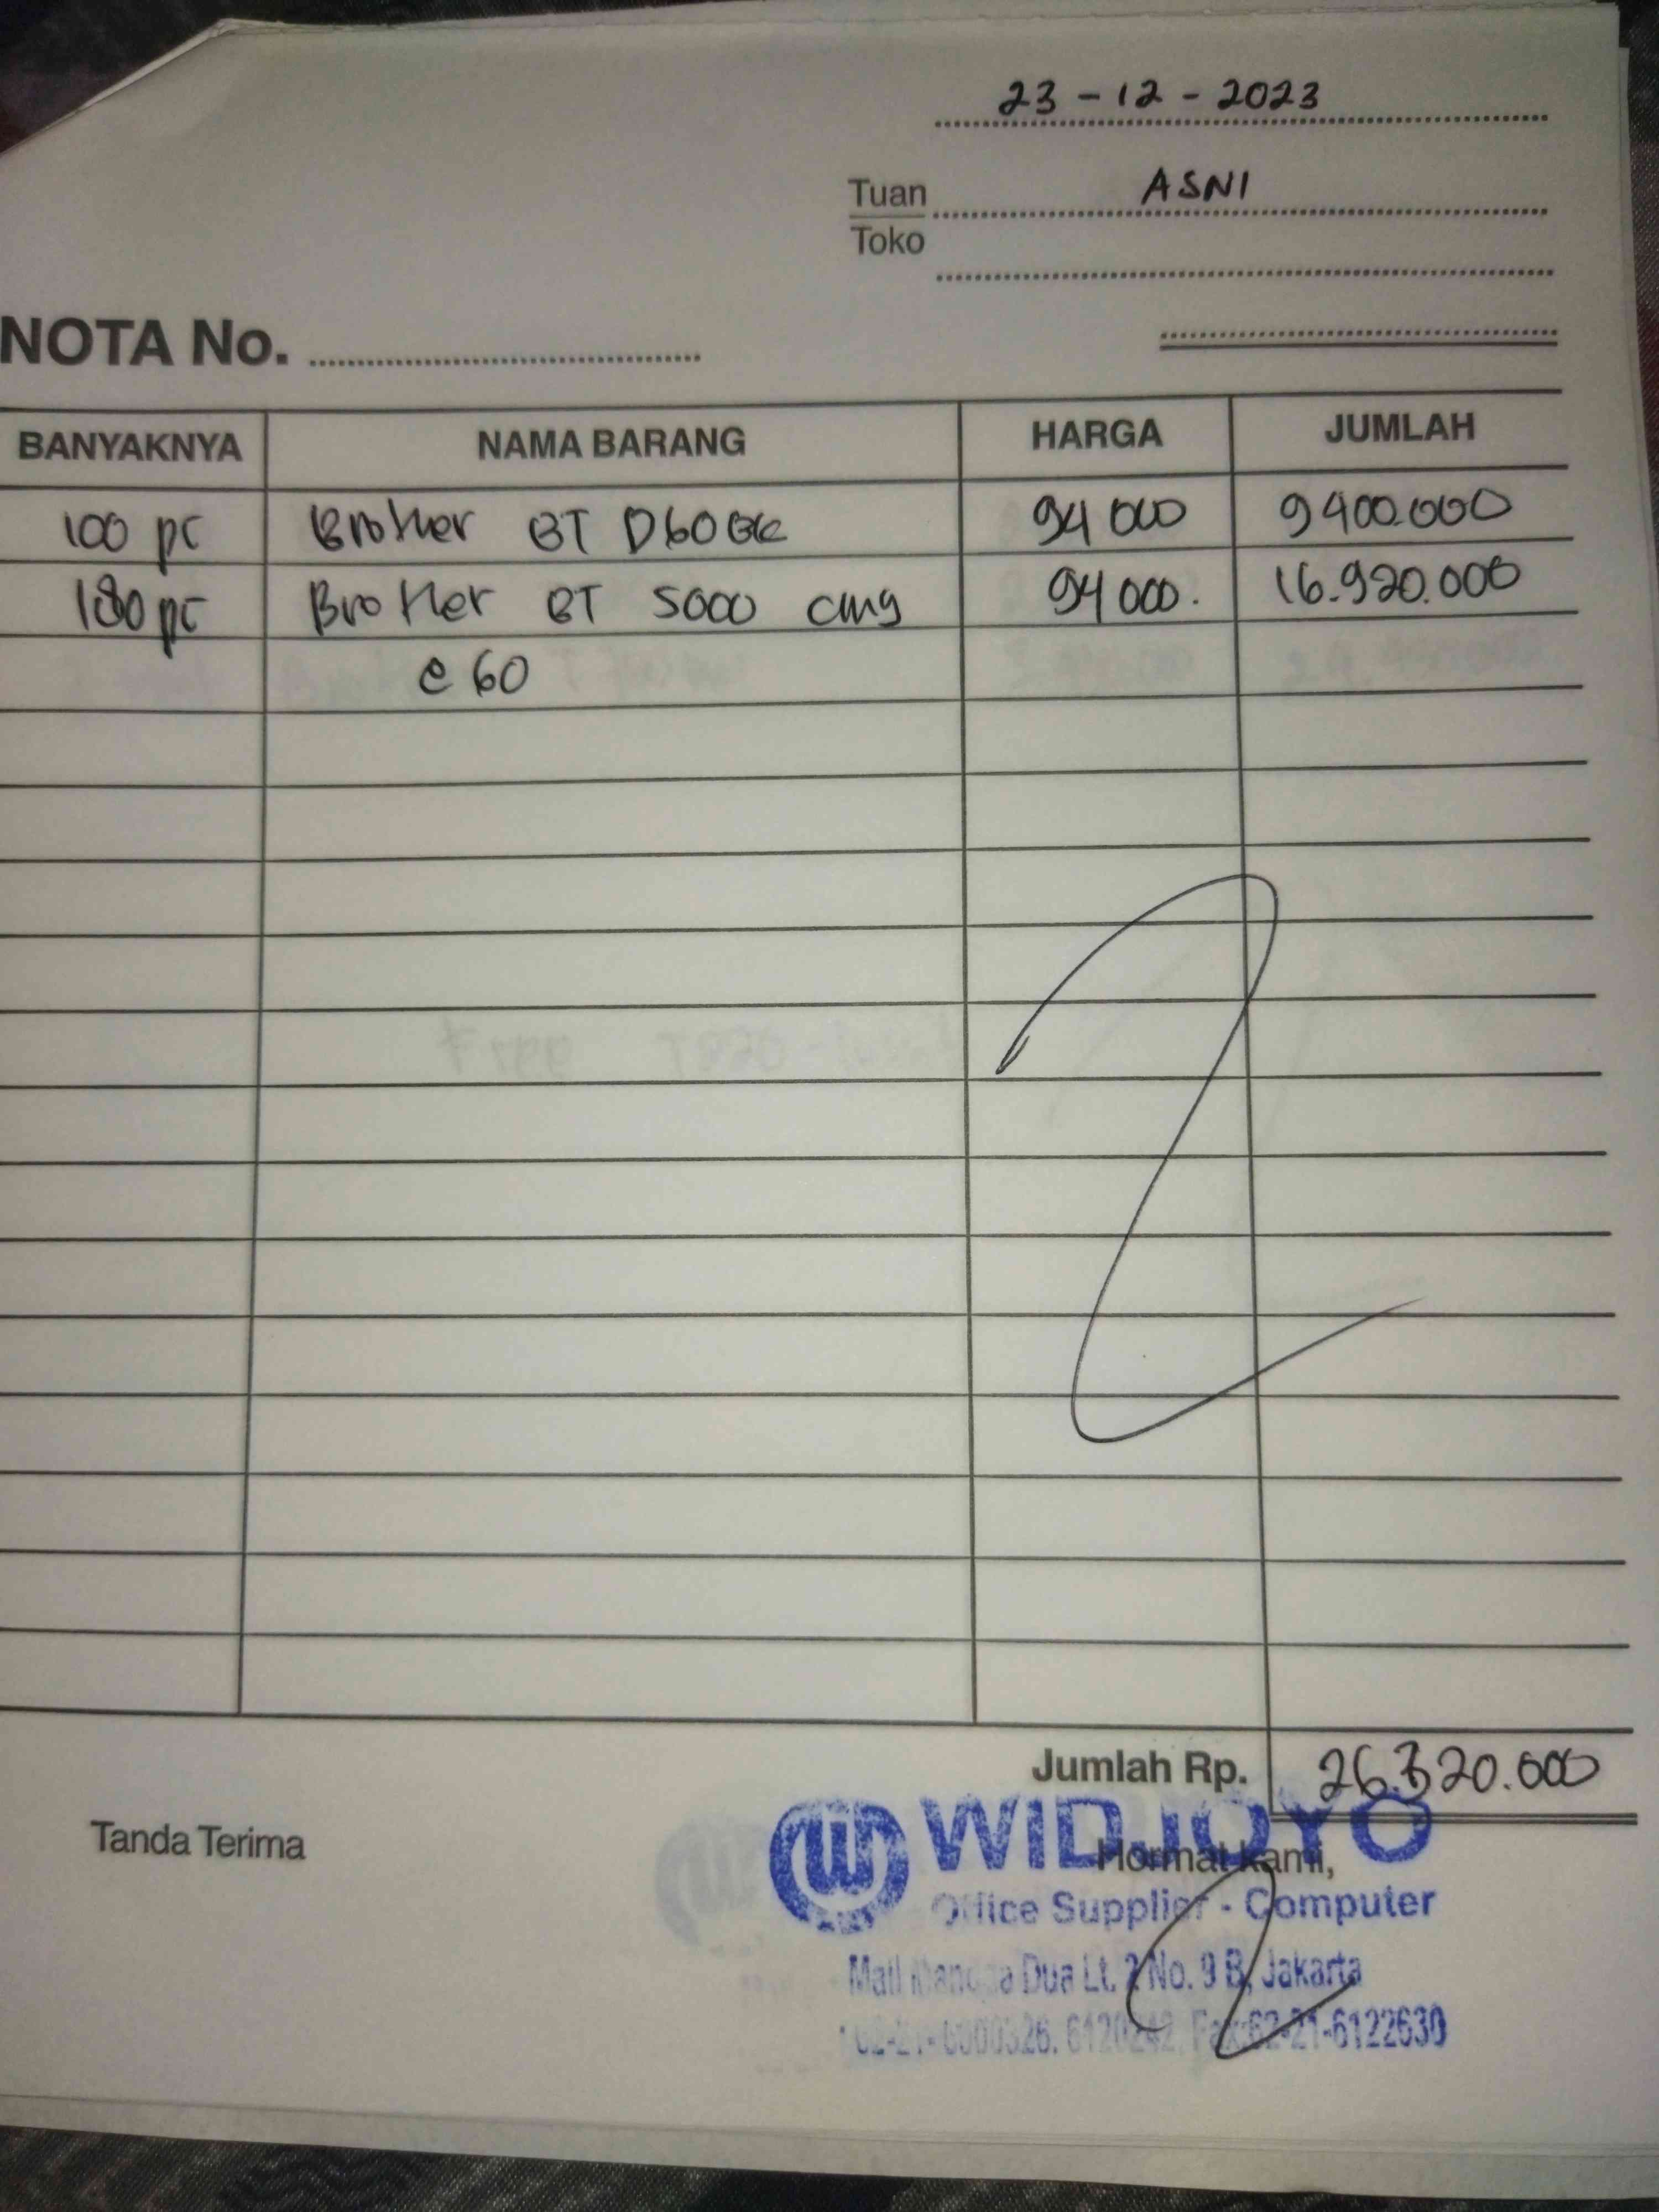 23 - 12 - 2023
Tuan ASNI
Toko
NOTA No.
BANYAKNYA NAMA BARANG HARGA JUMLAH
100 pc Brother BT D60BK 94 000 9 400.000
180 pc Brother BT 5000 cmy 94 000. 16.920.000
@ 60
Jumlah Rp. 26.320.000
Tanda Terima
Hormat kami,
WIDJOYO
Office Supplier - Computer
Mall Mangga Dua Lt. 2 No. 9 B, Jakarta
Fax:62-21-6122630